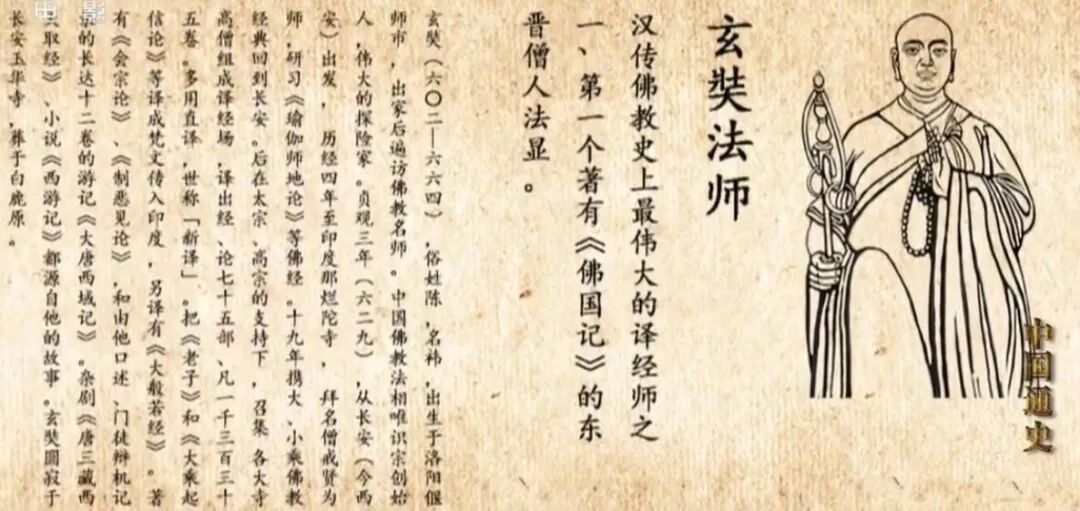 电影
玄奘法师
汉传佛教史上最伟大的译经师之
一、第一个著有《佛国记》的东
晋僧人法显。
玄奘（六〇二—六六四），俗姓陈，名袆，出生于洛阳偃
师市，出家后遍访佛教名师。中国佛教法相唯识宗创始
人，伟大的探险家。贞观三年（六二九），从长安（今西
安）出发，历经四年至印度那烂陀寺，拜名僧戒贤为
师，研习《瑜伽师地论》等佛经。十九年携大、小乘佛教
经典回到长安。后在太宗、高宗的支持下，召集各大寺
高僧组成译经场，译出经、论七十五部、凡一千三百三十
五卷。多用直译，世称「新译」。把《老子》和《大乘起
信论》等译成梵文传入印度，另译有《大般若经》。著
有《会宗论》、《制恶见论》，和由他口述、门徒辩机记
录的长达十二卷的游记《大唐西域记》。杂剧《唐三藏西
天取经》、小说《西游记》都源自他的故事。玄奘圆寂于
长安玉华寺，葬于白鹿原。
中国通史